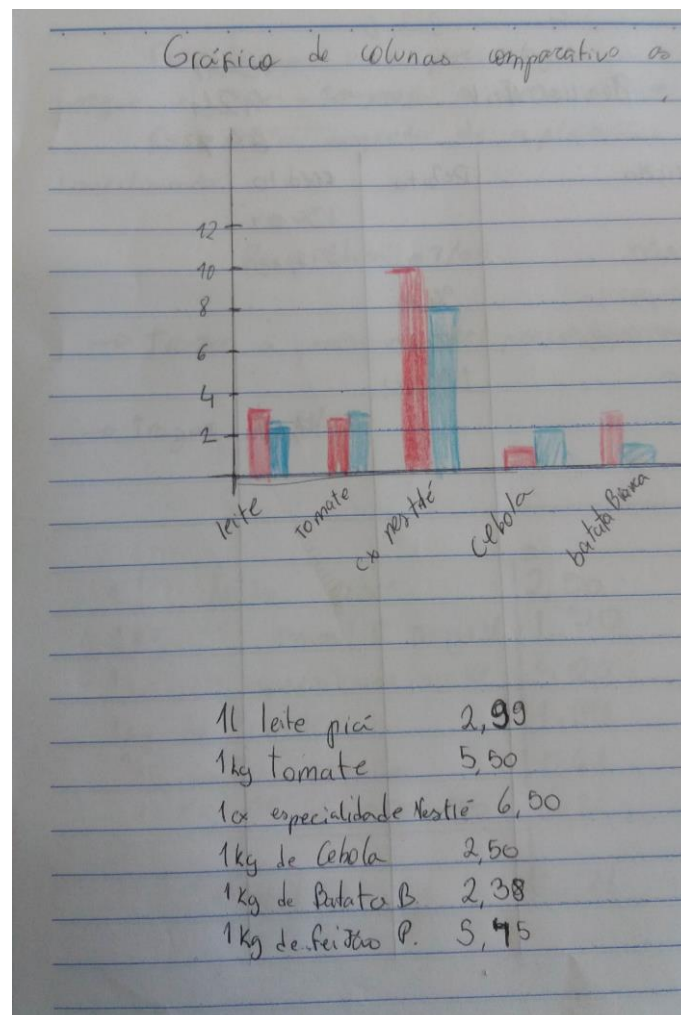 Gráfico de colunas comparativo os
12
10
8
6
4
2
leite tomate cx nestlé Cebola batata Branca
1l leite picá 2,99
1kg tomate 5,50
1cx especialidade Nestlé 6,50
1kg de Cebola 2,50
1kg de Batata B. 2,38
1kg de feijão P. 5,45